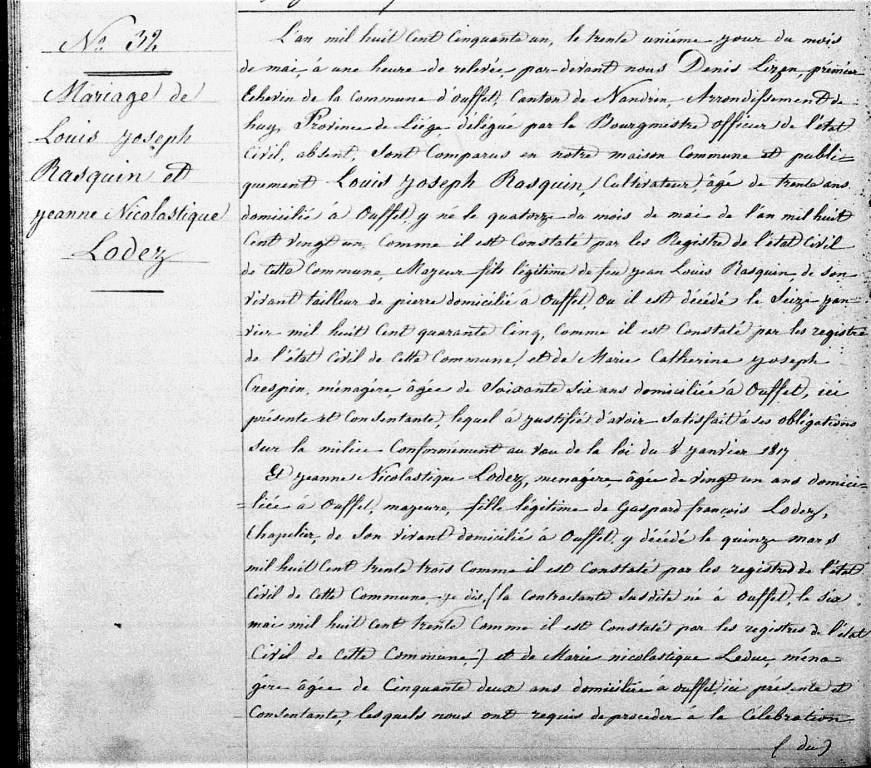 No 32
Mariage de
Louis Joseph
Rasquin et
Jeanne Nicolastique
Lodez
L'an mil huit Cent Cinquante un, le trente unième jour du mois
de mai à une heure de relevée, par-devant nous Denis Lizen, prémier
Echevin de la Commune d'Ouffet, Canton de Nandrin, Arrondissement de
huy, Province de Liége, délégué par le Bourgmestre officier de l'état
Civil, absent, Sont Comparus en notre maison Commune et publi-
quement Louis Joseph Rasquin, Cultivateur, âgé de trente ans
domicilié à Ouffet, y né le quatorze du mois de mai de l'an mil huit
Cent vingt un, Comme il est Constaté par les Registre de l'état Civil
de Cette Commune, Majeur fils légitime de feu Jean Louis Rasquin, de son
vivant tailleur de pierre domicilié à Ouffet, Ou il est décédé le Seize Jan-
vier mil huit Cent quarante Cinq, Comme il est Constaté par les registre
de l'état Civil de Cette Commune, et de Marie Catherine Joseph
Crespin, ménagère, âgée de Soixante six ans domiciliée à Ouffet, ici
présente et Consentante, lequel à Justifié d'avoir Satisfait à ses obligations
Sur la milice Conformément au vau de la loi du 8 Janvier 1817
Et Jeanne Nicolastique Lodez, menagère, âgée de vingt un ans domici-
-liée à Ouffet, majeure, fille légitime de Gaspard françois Lodez,
Chapelier, de Son vivant domicilié à Ouffet, y décédé le quinze mars
mil huit Cent trente trois Comme il est Constaté par les registres de l'état
Civil de Cette Commune, je dis, (la Contractante Susdite né à Ouffet, le six
mai mil huit Cent trente Comme il est Constaté par les registres de l'état
Civil de Cette Commune,) et de Marie nicolastique Leduc, ména-
gère âgée de Cinquante deux ans domiciliée à ouffet, ici présente et
Consentante, lesquels nous ont requis de proceder à la Célébration
(du)